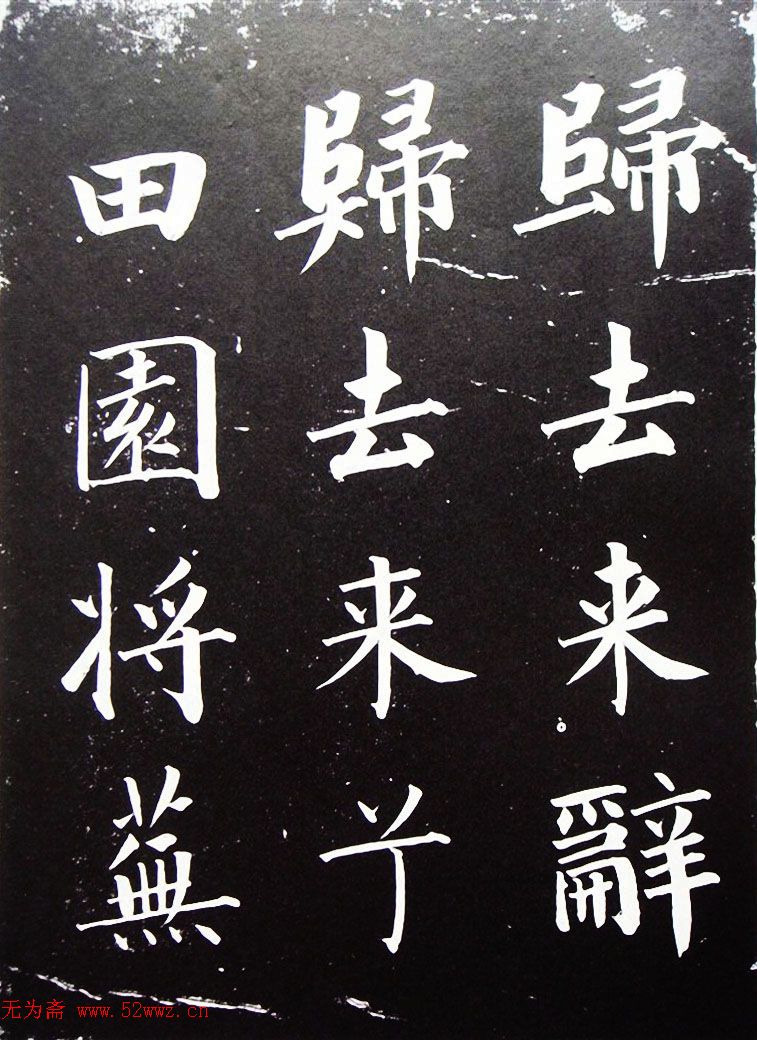 歸去来辭
歸去来兮
田園将蕪
无为斋 www.52wwz.cn